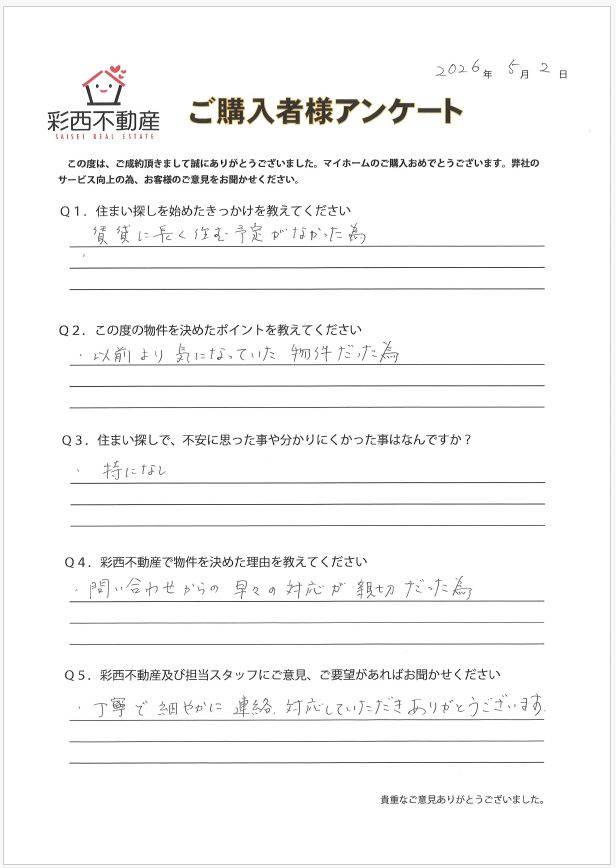 2026年 5月 2日
彩西不動産
SAISEI REAL ESTATE
ご購入者様アンケート
この度は、ご成約頂きまして誠にありがとうございました。マイホームのご購入おめでとうございます。弊社の
サービス向上の為、お客様のご意見をお聞かせください。
Q1．住まい探しを始めたきっかけを教えてください
賃貸に長く住む予定がなかった為
Q2．この度の物件を決めたポイントを教えてください
・以前より気になっていた物件だった為
Q3．住まい探しで、不安に思った事や分かりにくかった事はなんですか？
・特になし
Q4．彩西不動産で物件を決めた理由を教えてください
・問い合わせからの早々の対応が親切だった為
Q5．彩西不動産及び担当スタッフにご意見、ご要望があればお聞かせください
・丁寧で細やかに連絡、対応していただきありがとうございます.
貴重なご意見ありがとうございました。